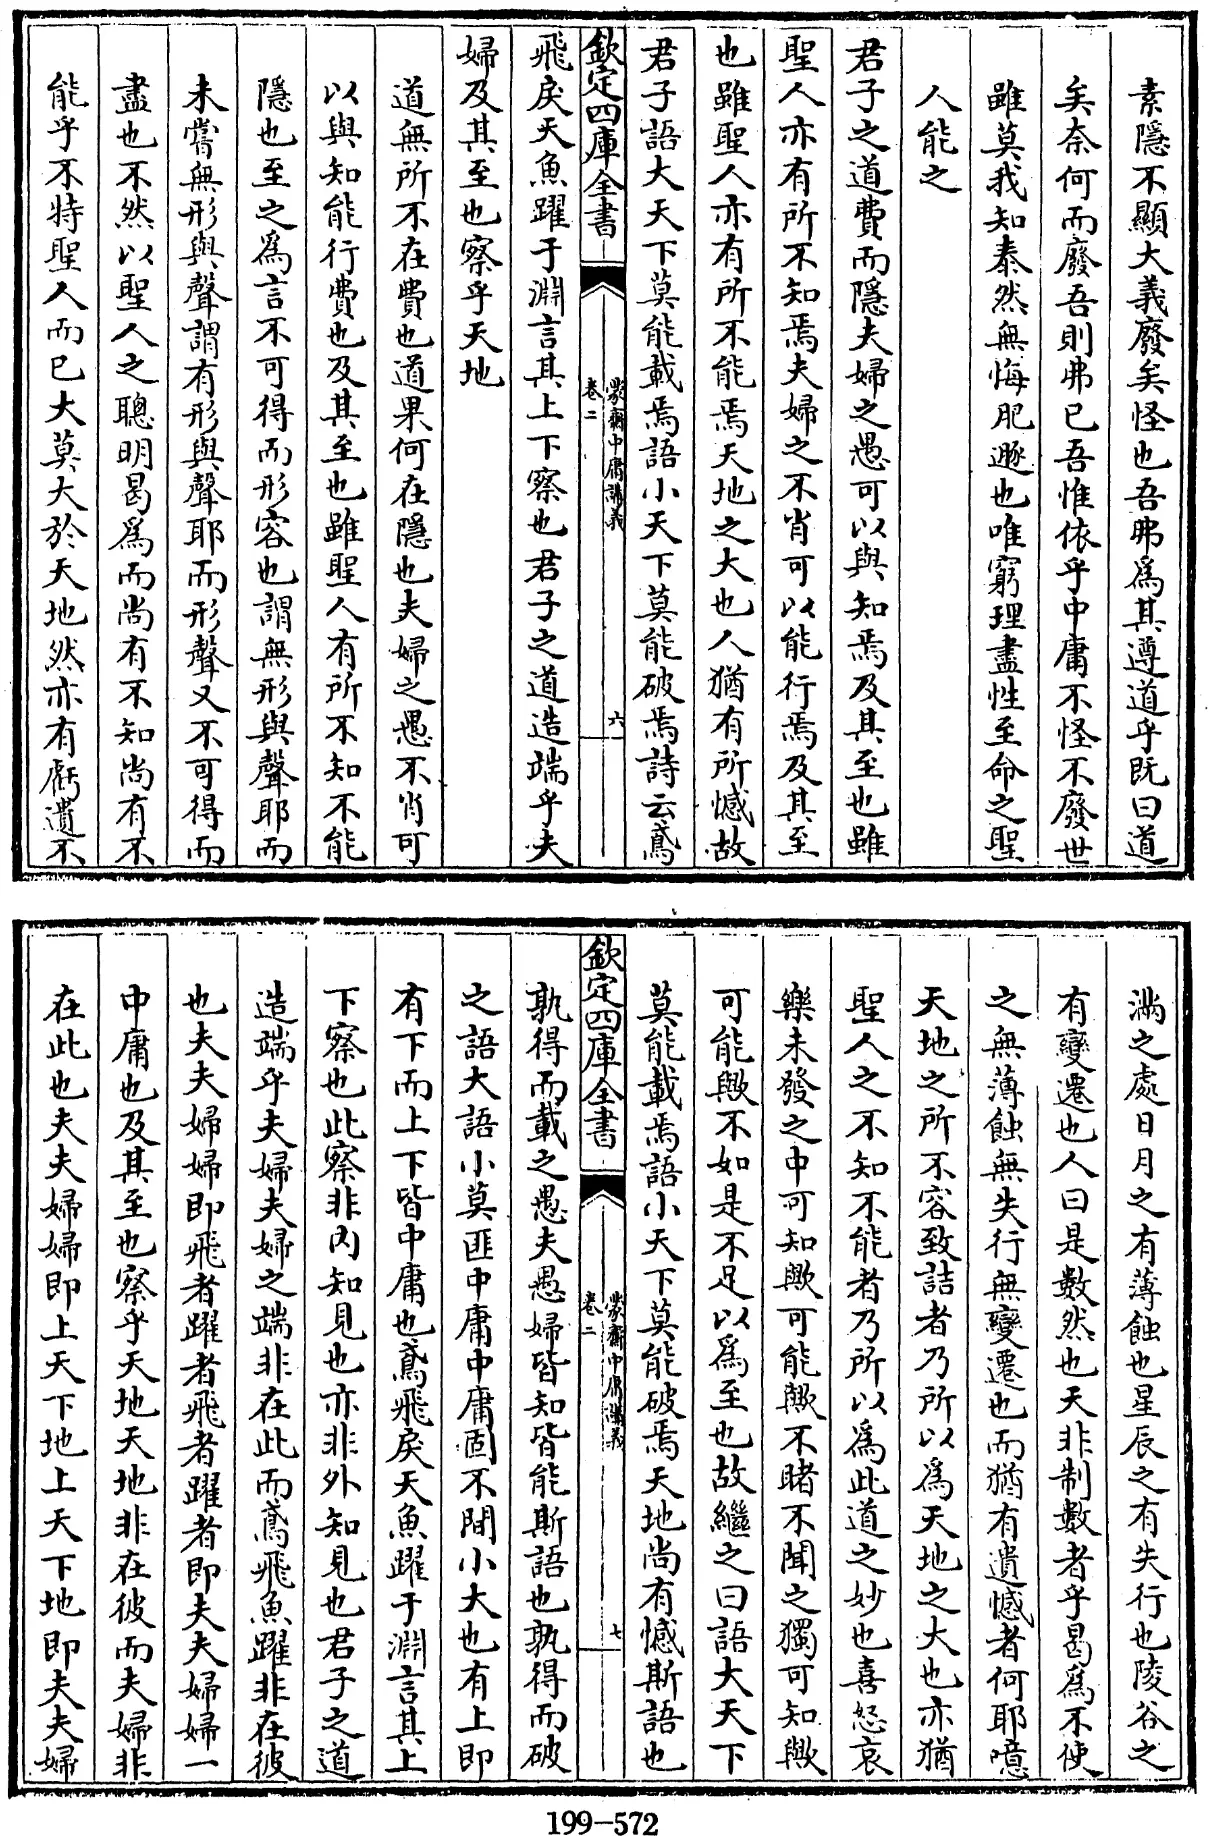 素隱不顯大義廢矣怪也吾弗爲其遵道乎既曰道
矣奈何而廢吾則弗已吾惟依乎中庸不怪不廢世
雖莫我知泰然無悔肥遯也唯窮理盡性至命之聖
人能之
君子之道費而隱夫婦之愚可以與知焉及其至也雖
聖人亦有所不知焉夫婦之不肖可以能行焉及其至
也雖聖人亦有所不能焉天地之大也人猶有所憾故
君子語大天下莫能載焉語小天下莫能破焉詩云鳶
欽定四庫全書
蒙齋中庸講義
卷二
六
飛戾天魚躍于淵言其上下察也君子之道造端乎夫
婦及其至也察乎天地
道無所不在費也道果何在隱也夫婦之愚不肖可
以與知能行費也及其至也雖聖人有所不知不能
隱也至之爲言不可得而形容也謂無形與聲耶而
未嘗無形與聲謂有形與聲耶而形聲又不可得而
盡也不然以聖人之聰明曷爲而尚有不知尚有不
能乎不特聖人而已大莫大於天地然亦有虧遺不
滿之處日月之有薄蝕也星辰之有失行也陵谷之
有變遷也人曰是數然也天非制數者乎曷爲不使
之無薄蝕無失行無變遷也而猶有遺憾者何耶噫
天地之所不容致詰者乃所以爲天地之大也亦猶
聖人之不知不能者乃所以爲此道之妙也喜怒哀
樂未發之中可知歟可能歟不睹不聞之獨可知歟
可能歟不如是不足以爲至也故繼之曰語大天下
莫能載焉語小天下莫能破焉天地尚有憾斯語也
欽定四庫全書
蒙齋中庸講義
卷二
七
孰得而載之愚夫愚婦皆知皆能斯語也孰得而破
之語大語小莫匪中庸中庸固不間小大也有上即
有下而上下皆中庸也鳶飛戾天魚躍于淵言其上
下察也此察非內知見也亦非外知見也君子之道
造端乎夫婦夫婦之端非在此而鳶飛魚躍非在彼
也夫夫婦婦即飛者躍者飛者躍者即夫夫婦婦一
中庸也及其至也察乎天地天地非在彼而夫婦非
在此也夫夫婦婦即上天下地上天下地即夫夫婦
199-572